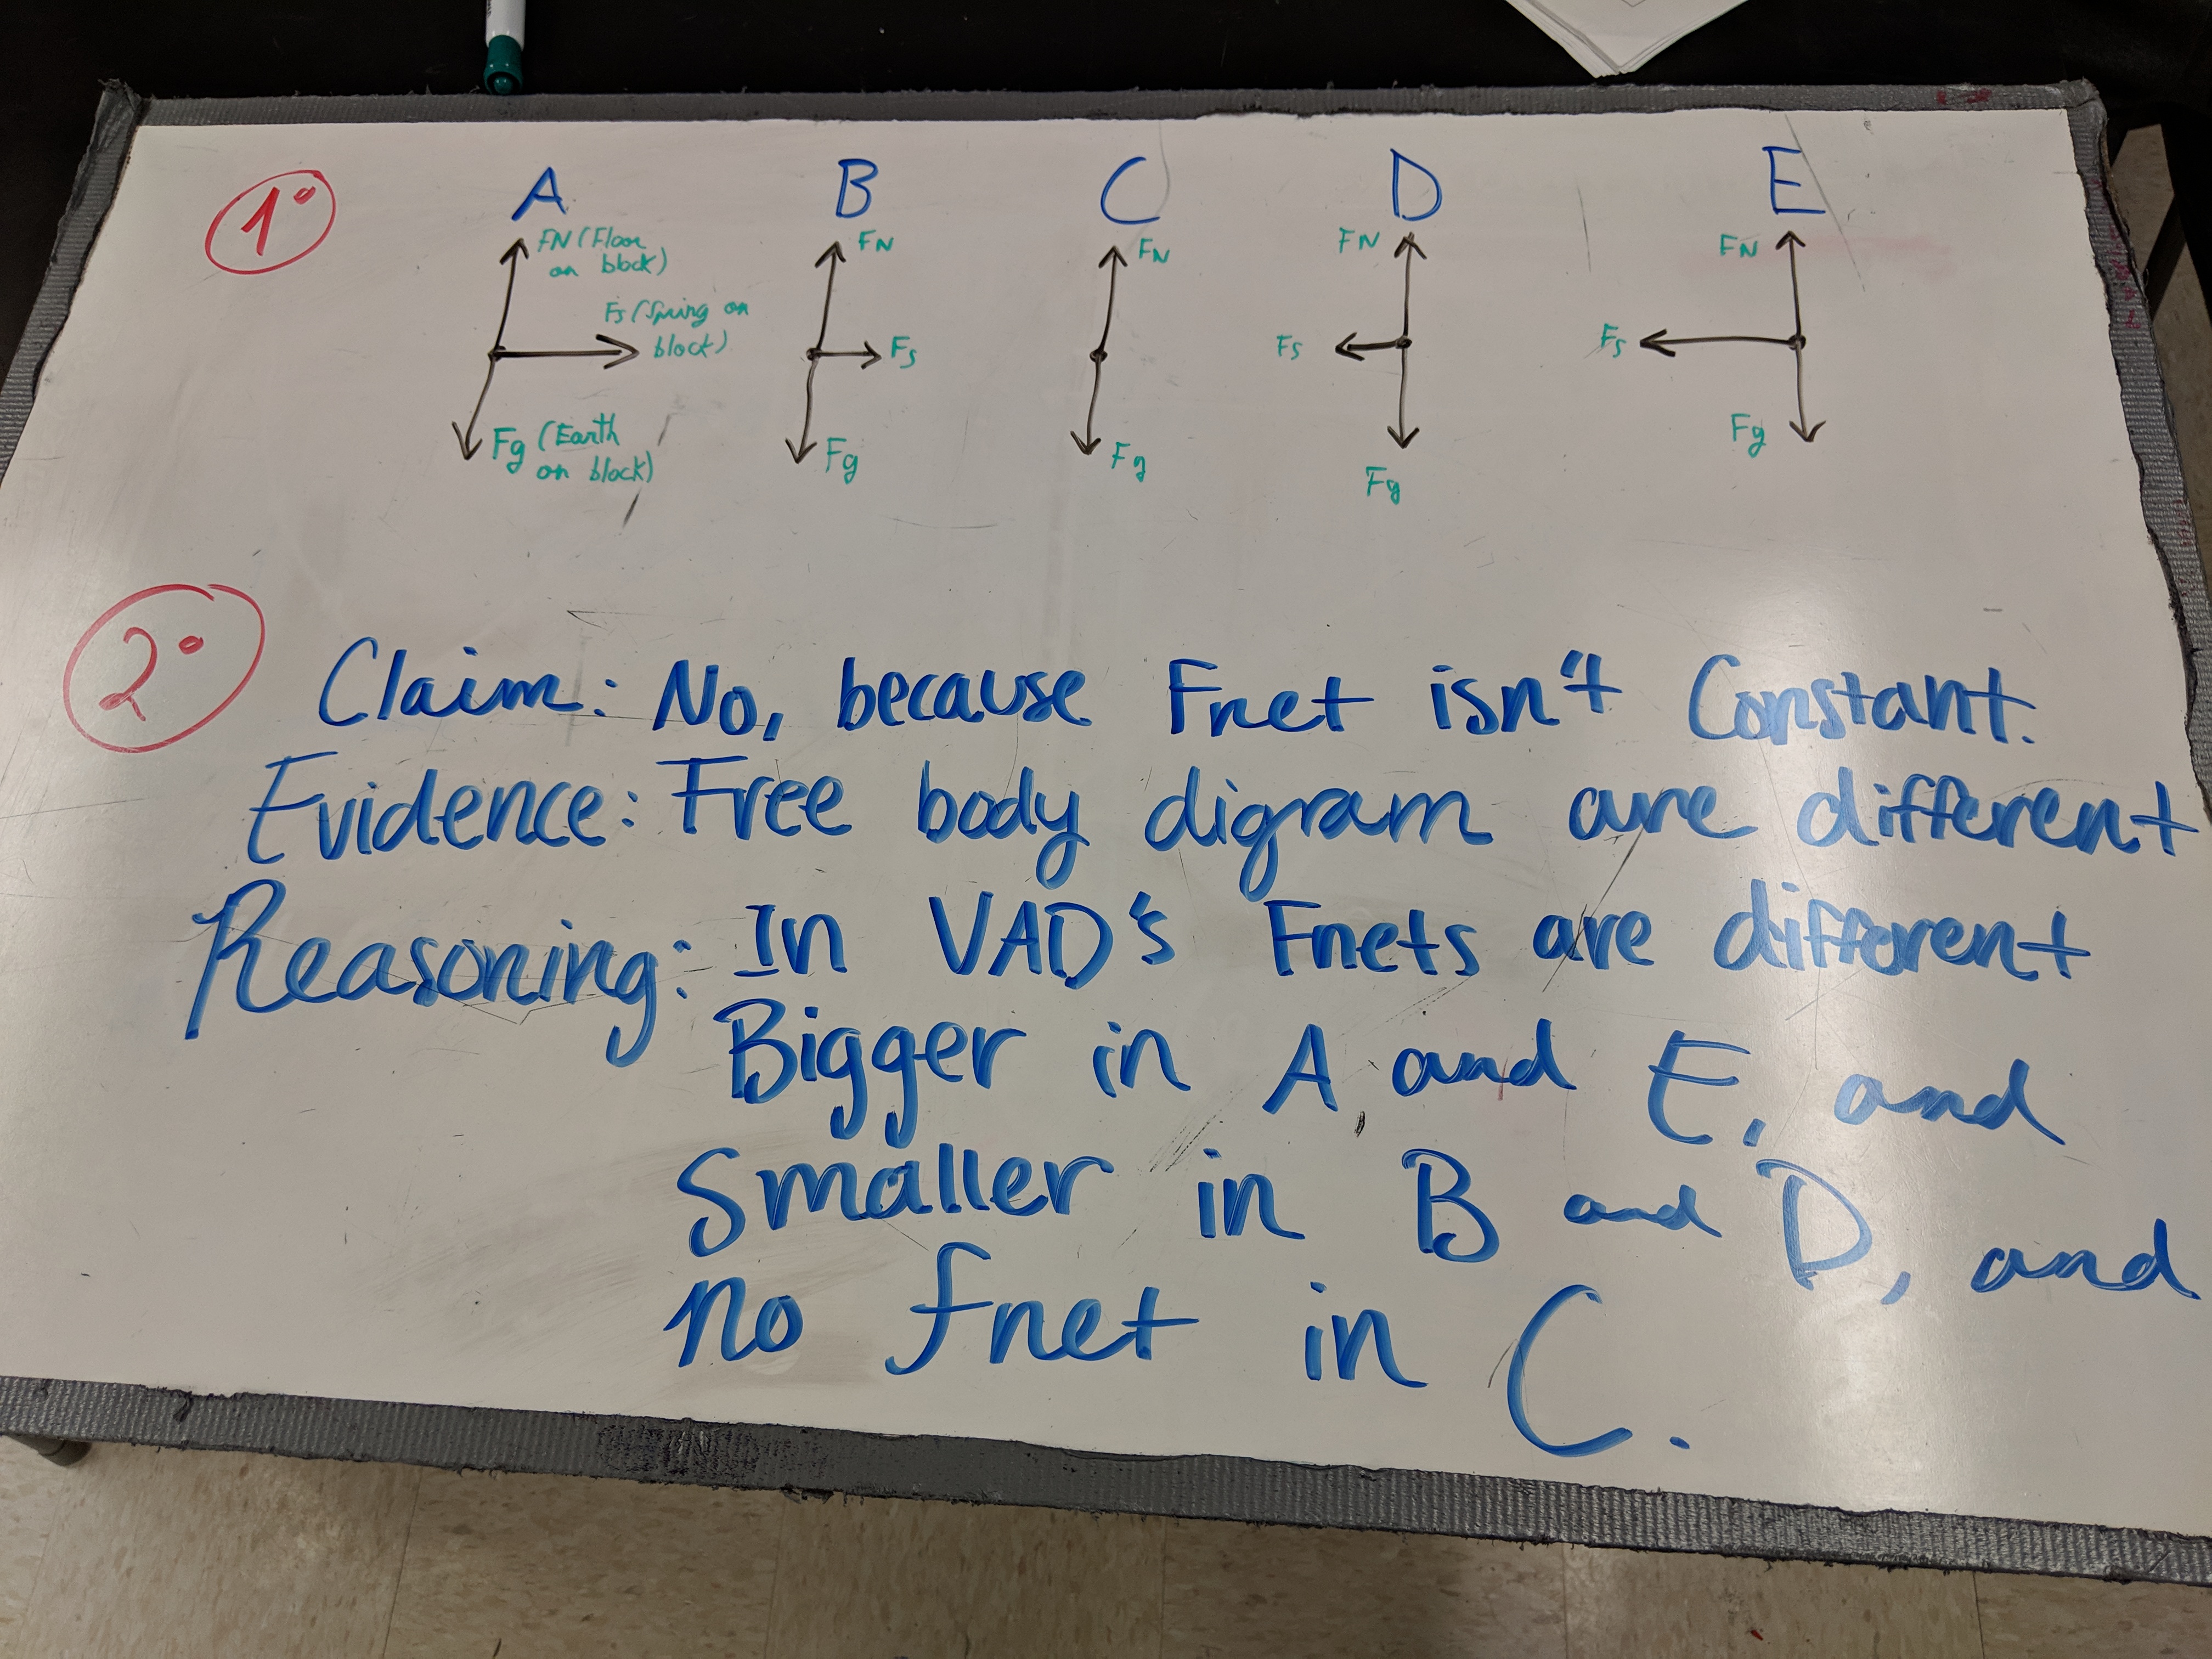 1°
A B C D E
FN (Floor on block)
Fs (Spring on block)
Fg (Earth on block)
FN
Fs
Fg
FN
Fg
FN
Fs
Fg
FN
Fs
Fg
2°
Claim: No, because Fnet isn't Constant.
Evidence: Free body digram are different
Reasoning: In VAD's Fnets are different
Bigger in A and E, and
Smaller in B and D, and
no fnet in C.